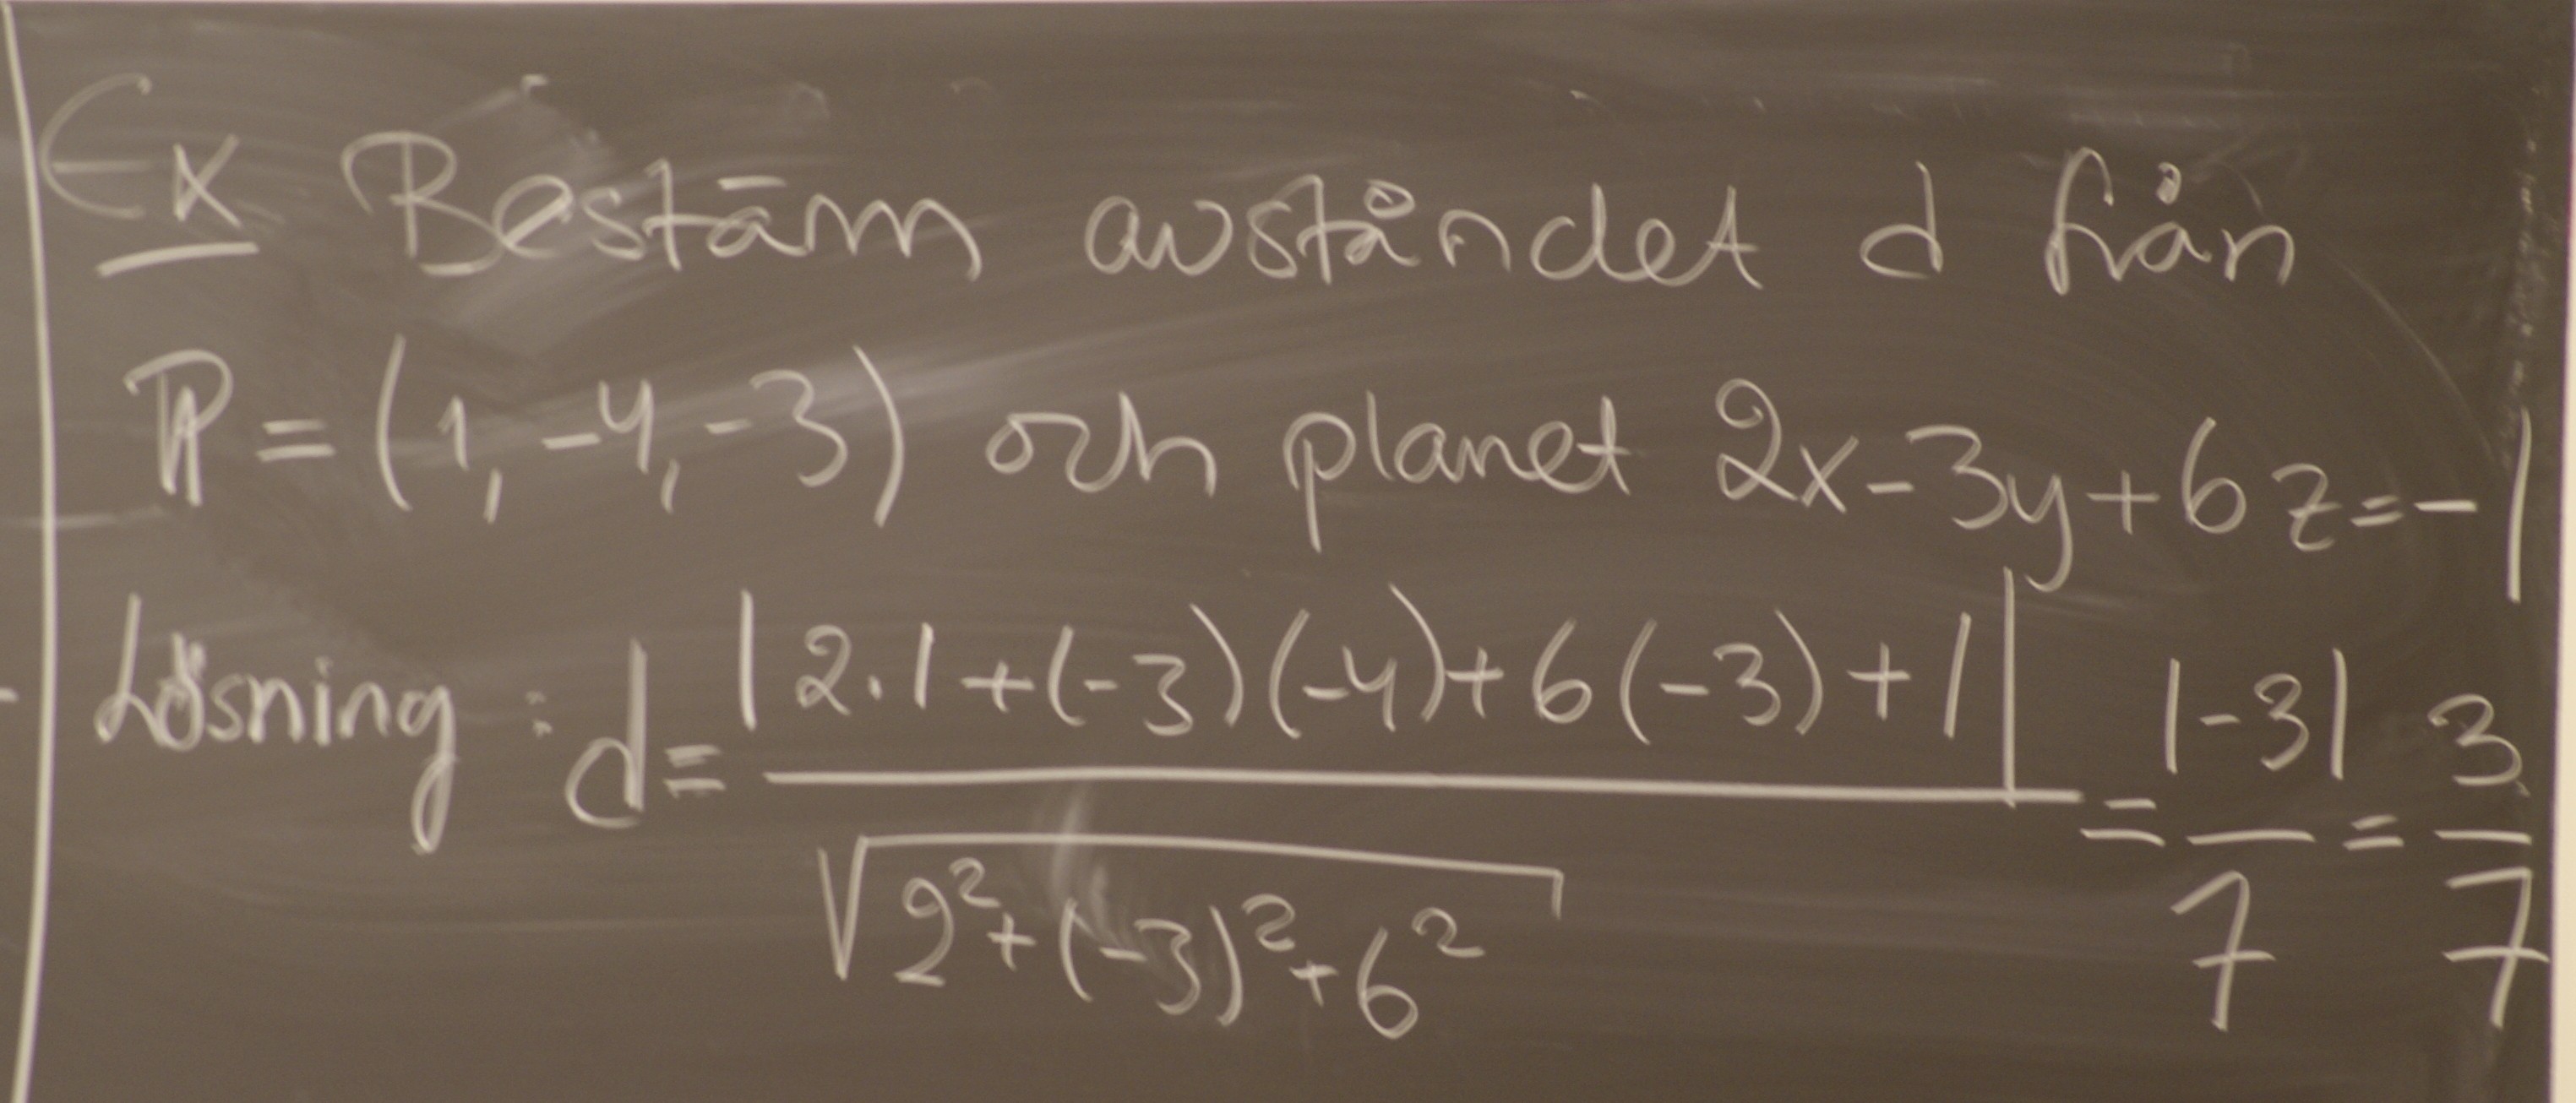 Ex Bestäm avståndet d från
P = (1, -4, -3) och planet 2x - 3y + 6z = -1
Lösning: d = |2·1 + (-3)(-4) + 6(-3) + 1| / √(2² + (-3)² + 6²) = |-3| / 7 = 3 / 7